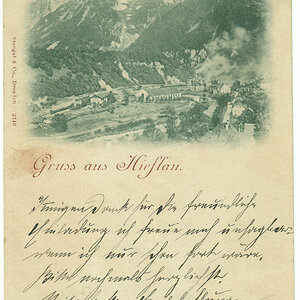 Stengel & Co., Dresden 2516
Gruss aus Hieflau.
Innigen Dank für die freundliche
Einladung ich freue mich unsagbar
wenn ich nur schon fort wäre,
bitte nochmals herzlichst